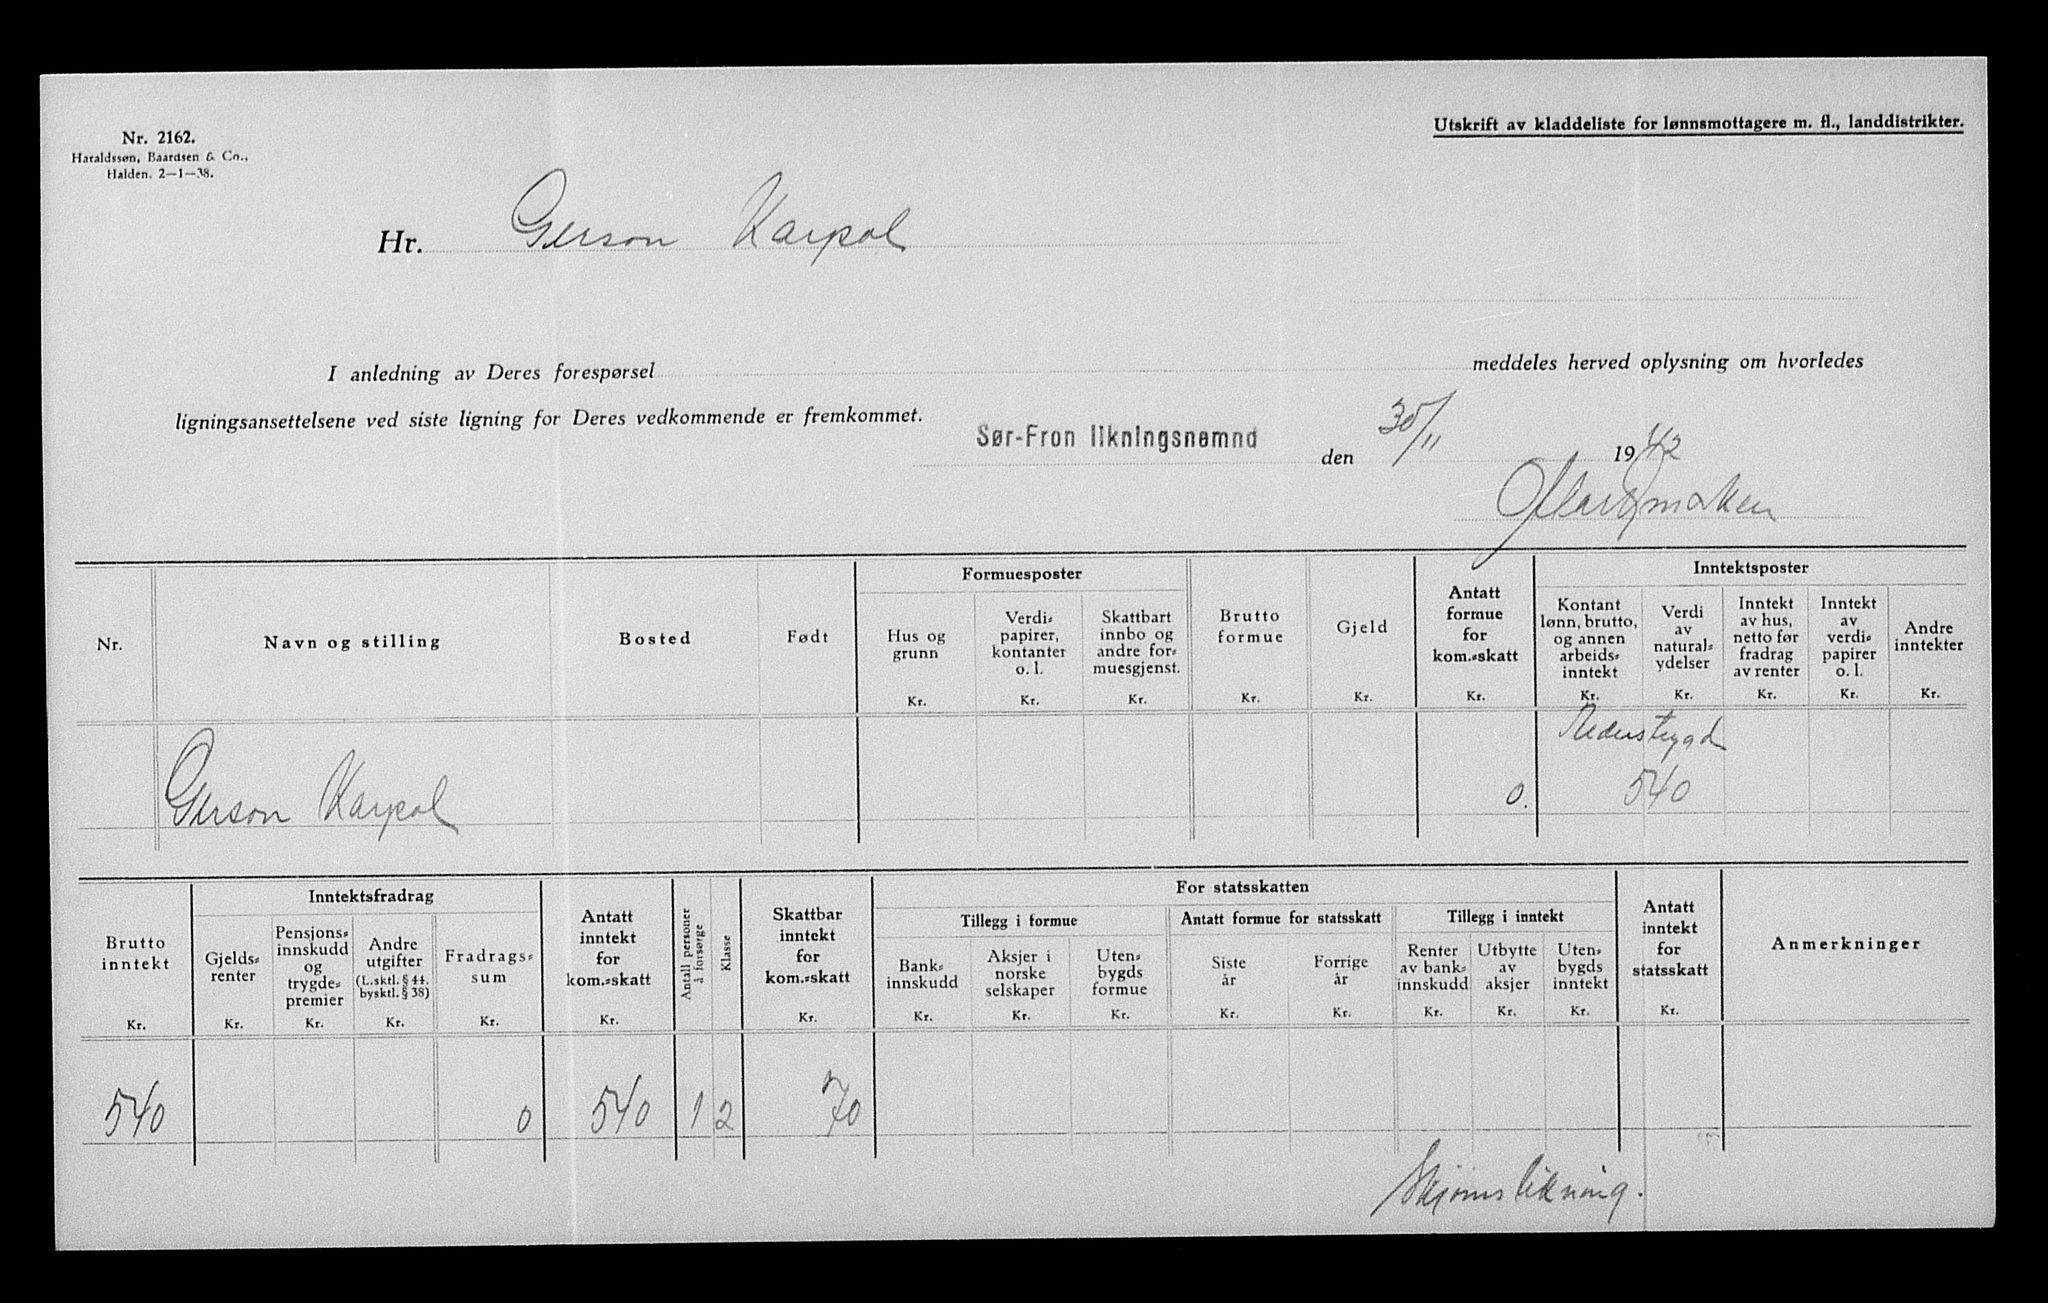 Nr. 2162.
Haraldssøn, Baardsen & Co.,
Halden. 2—1—38.
Utskrift av kladdeliste for lønnsmottagere m. fl., landdistrikter.
Hr. Gerson Karpol
I anledning av Deres forespørsel meddeles herved oplysning om hvorledes
ligningsansettelsene ved siste ligning for Deres vedkommende er fremkommet.
Sør-Fron likningsnemnd den 30/11 1942
Nr.
Navn og stilling
Bosted
Født
Formuesposter
Hus og
grunn
Kr.
Verdi-
papirer,
kontanter
o. l.
Kr.
Skattbart
innbo og
andre for-
muesgjenst.
Kr.
Brutto
formue
Kr.
Gjeld
Kr.
Antatt
formue
for
kom.-skatt
Kr.
Inntektsposter
Kontant
lønn, brutto,
og annen
arbeids-
inntekt
Kr.
Verdi
av
natural-
ydelser
Kr.
Inntekt
av hus,
netto før
fradrag
av renter
Kr.
Inntekt
av
verdi-
papirer
o. l.
Kr.
Andre
inntekter
Kr.
Gerson Karpol
0.
540
Brutto
inntekt
Kr.
Inntektsfradrag
Gjelds-
renter
Kr.
Pensjons-
innskudd
og
trygde-
premier
Kr.
Andre
utgifter
(L.sktl. § 44.
bysktl. § 38)
Kr.
Fradrags-
sum
Kr.
Antatt
inntekt
for
kom.-skatt
Kr.
Antall personer
å forsørge
Klasse
Skattbar
inntekt
for
kom.-skatt
Kr.
For statsskatten
Tillegg i formue
Bank-
innskudd
Kr.
Aksjer i
norske
selskaper
Kr.
Uten-
bygds
formue
Kr.
Antatt formue for statsskatt
Siste
år
Kr.
Forrige
år
Kr.
Tillegg i inntekt
Renter
av bank-
innskudd
Kr.
Utbytte
av
aksjer
Kr.
Uten-
bygds
inntekt
Kr.
Antatt
inntekt
for
statsskatt
Kr.
Anmerkninger
540 0 540 1 2 70
Skjønslikning.